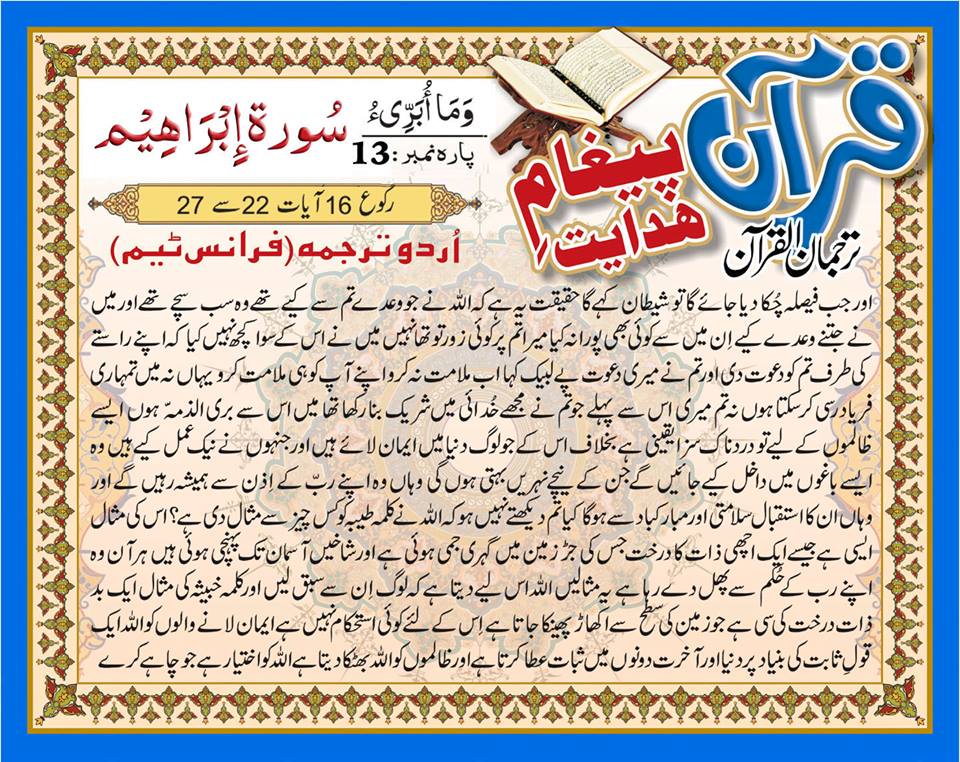 قرآن
پیغامِ
ھدایت
ترجمان القرآن
وَمَا أُبَرِّیءُ
پارہ نمبر:13
سُورۃ إِبْرَاهِيْم
رکوع 16 آیات 22 سے 27
اُردو ترجمہ (فرانس ٹیم)
اور جب فیصلہ چُکا دیا جائے گا تو شیطان کہے گا حقیقت یہ ہے کہ اللہ نے جو وعدے تم سے کیے تھے وہ سب سچے تھے اور میں
نے جتنے وعدے کیے اِن میں سے کوئی بھی پورا نہ کیا میرا تم پر کوئی زور تو تھا نہیں میں نے اس کے سوا کچھ نہیں کیا کہ اپنے راستے
کی طرف تم کو دعوت دی اور تم نے میری دعوت پے لبیک کہا اب ملامت نہ کرو اپنے آپ کو ہی ملامت کرو یہاں نہ میں تمہاری
فریاد رسی کر سکتا ہوں نہ تم میری اس سے پہلے جو تم نے مجھے خُدائی میں شریک بنا رکھا تھا میں اس سے بری الذمہّ ہوں ایسے
ظالموں کے لیے تو دردناک سزا یقینی ہے بخلاف اس کے جو لوگ دنیا میں ایمان لائے ہیں اور جنہوں نے نیک عمل کیے ہیں وہ
ایسے باغوں میں داخل کیے جائیں گے جن کے نیچے نہریں بہتی ہوں گی وہاں وہ اپنے ربّ کے اِذن سے ہمیشہ رہیں گے اور
وہاں ان کا استقبال سلامتی اور مبارکباد سے ہوگا کیا تم دیکھتے نہیں ہو کہ اللہ نے کلمہ طیبہ کو کس چیز سے مثال دی ہے؟ اس کی مثال
ایسی ہے جیسے ایک اچھی ذات کا درخت جس کی جڑ زمین میں گہری جمی ہوئی ہے اور شاخیں آسمان تک پہنچی ہوئی ہیں ہر آن وہ
اپنے رب کے حُکم سے پھل دے رہا ہے یہ مثالیں اللہ اس لیے دیتا ہے کہ لوگ اِن سے سبق لیں اور کلمہ خبیثہ کی مثال ایک بد
ذات درخت کی سی ہے جو زمین کی سطح سے اکھاڑ پھینکا جاتا ہے اِس کے لئے کوئی استحکام نہیں ہے ایمان لانے والوں کو اللہ ایک
قولِ ثابت کی بنیاد پر دنیا اور آخرت دونوں میں ثبات عطا کرتا ہے اور ظالموں کو اللہ بھٹکا دیتا ہے اللہ کو اختیار ہے جو چاہے کرے